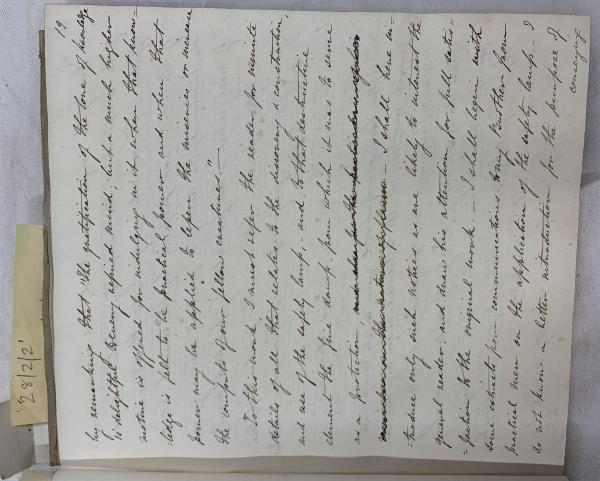 19
by remarking that "The gratification of the love of knowledge
is delightful to every refined mind; but a much higher
motive is offered for indulging in it when that know-
-ledge is felt to be practical power and when that
power may be applied to lessen the miseries or increase
the comforts of our fellow creatures." —
To this work I must refer the reader for minute
details of all that relates to the discovery & construction,
and use of the safety lamp. and to that destructive
element the fire damp. from which it was to serve
as a protection,
— I shall here in-
-troduce only such notices as are likely to interest the
general reader, and draw his attention for full satis-
-faction to the original work — I shall begin with
some extracts from communications to my Brother from
practical men on the application of the safety lamp. I
do not know a better introduction for the purpose of
conveying
28/2/2'